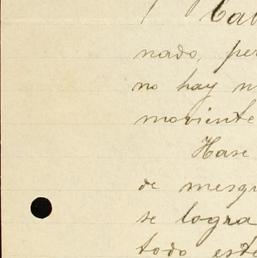 nado, per
no hay n
moviente
Hase
de mesqu
se logra
todo este